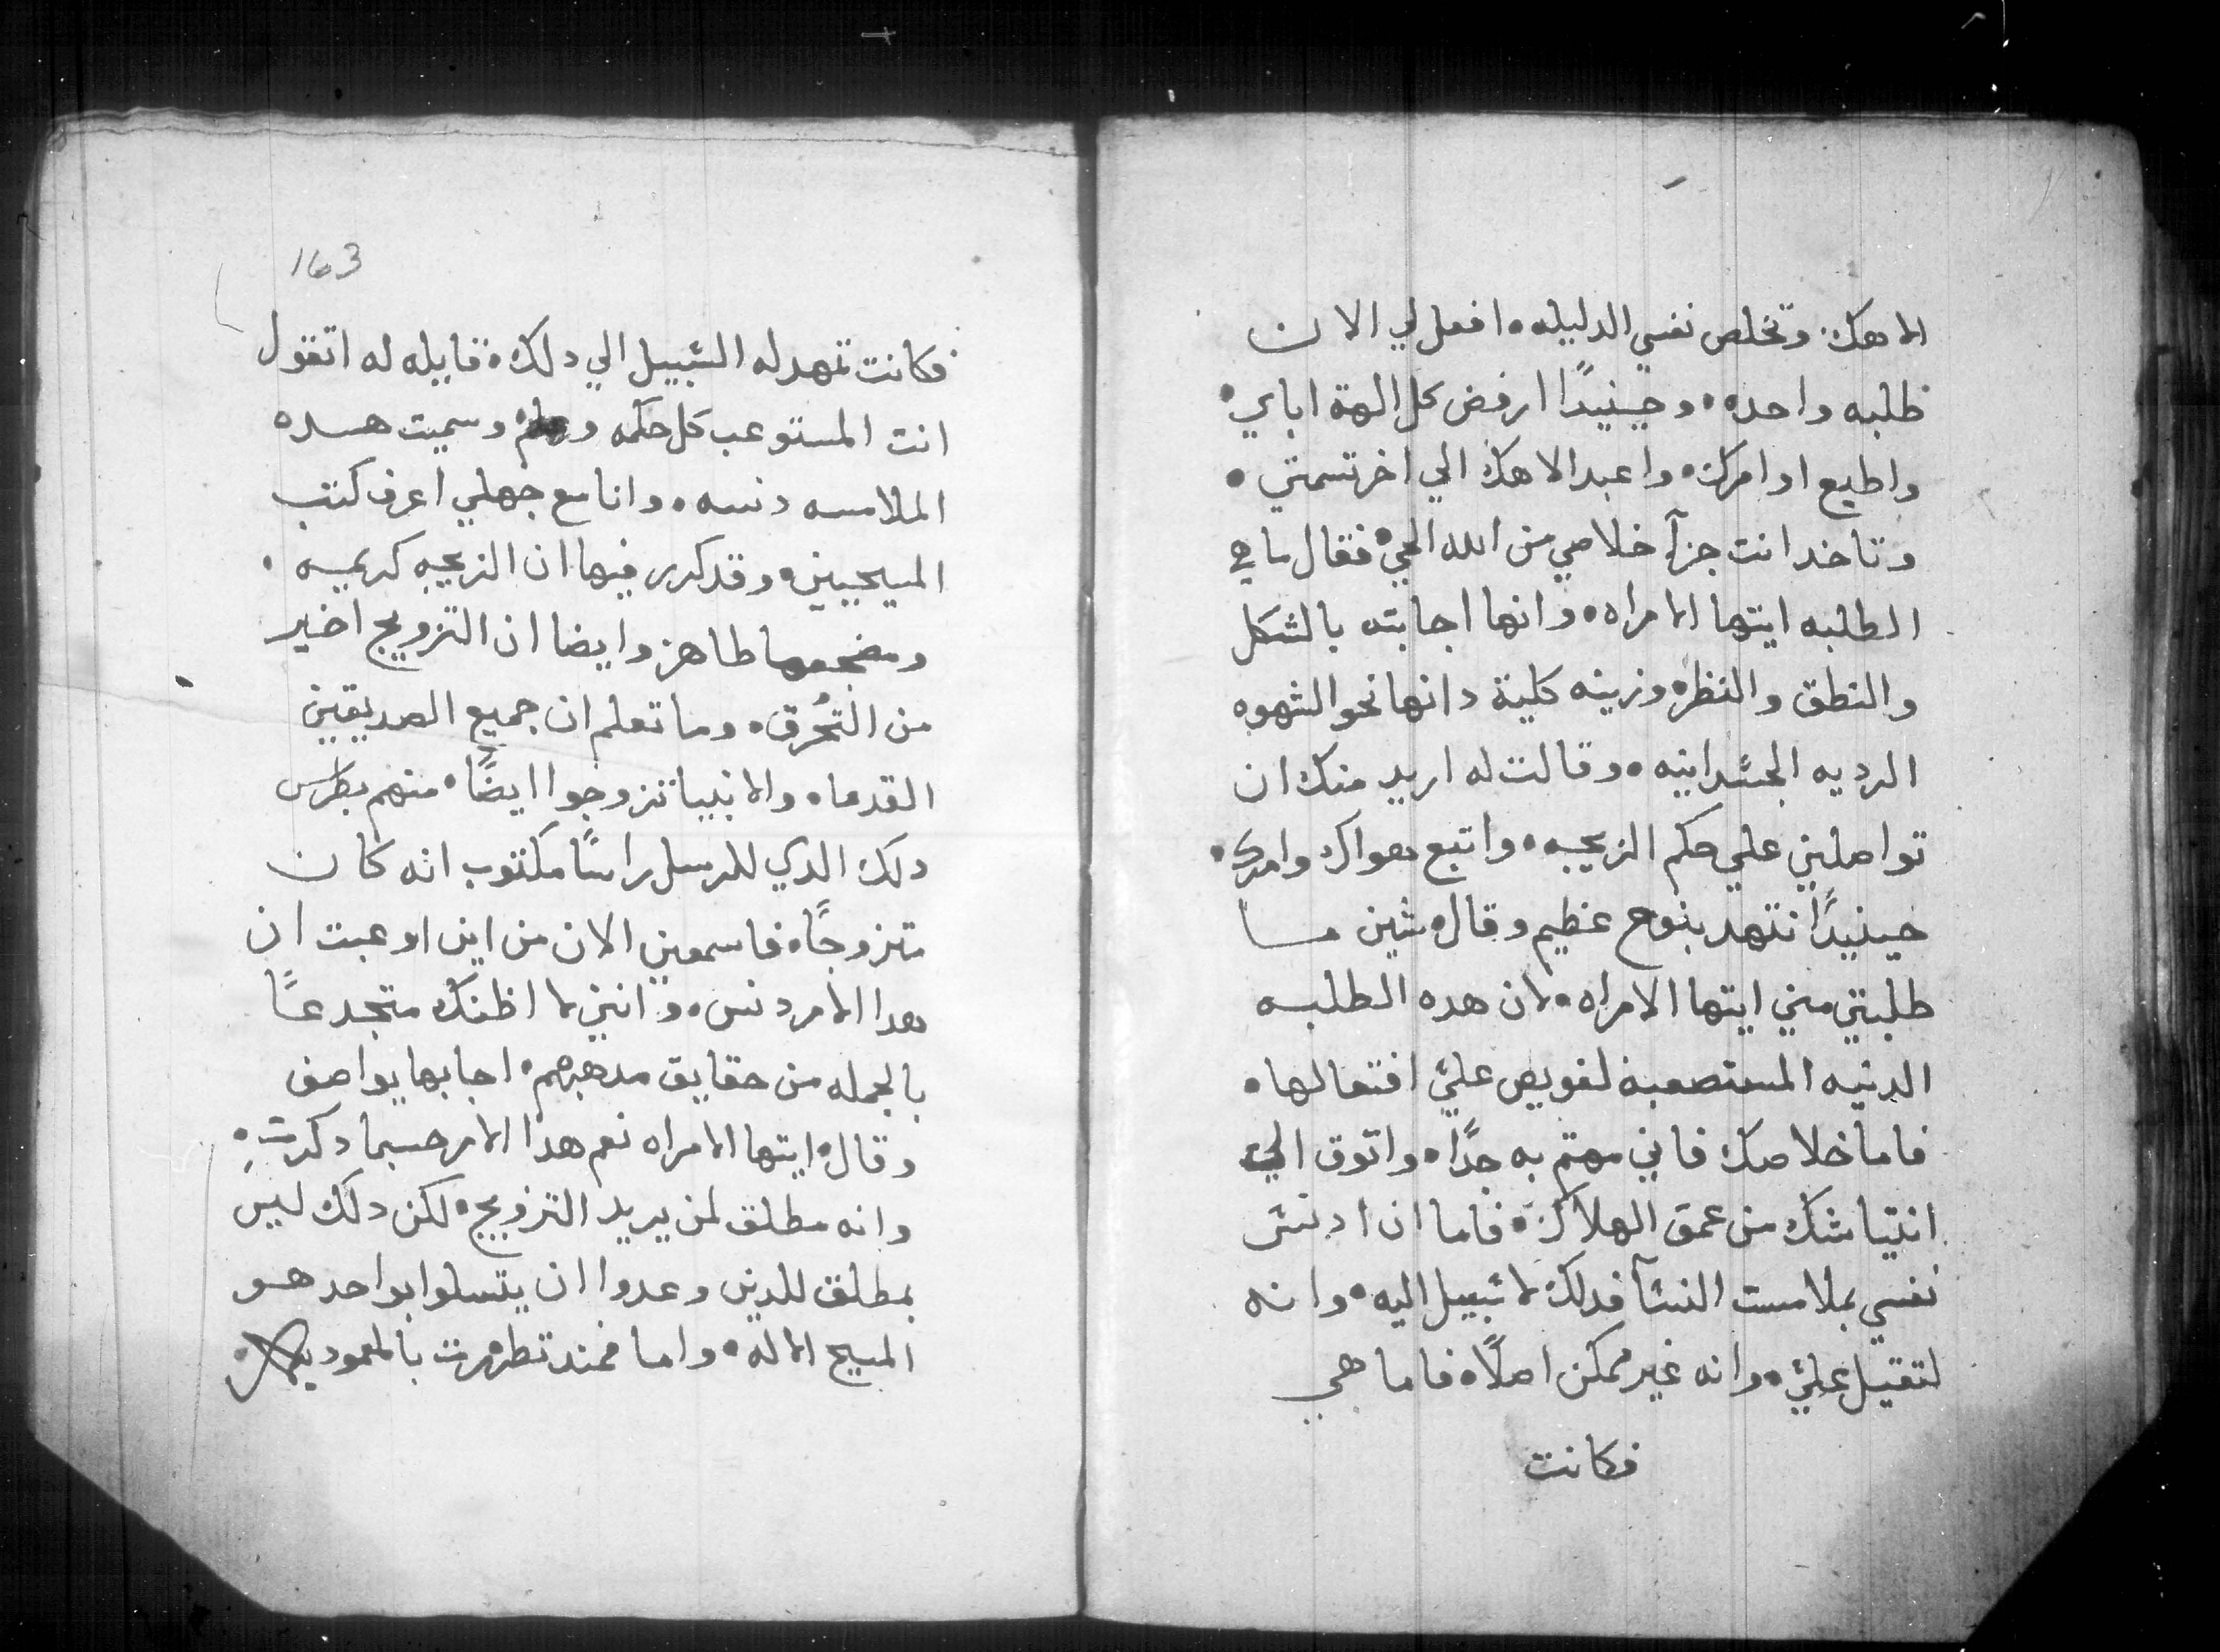 الاهك. وتخلص نفسي الدليله. افعل لي الان
طلبه واحده. وحينيدًا ارفض كل الهة اباي.
واطيع اوامرك. واعبد الاهك الي اخر تسمتي.
وتاخد انت جزآ خلاصي من الله الحي. فقال ما هي
الطلبه ايتها الامراه. وانها اجابته بالشكل
والنطق والنظره وزينه كلية دانها نحو الشهوه
الرديه الجشدانيه. وقالت له اريد منك ان
تواصلني علي حكم الزيجه. واتبع هواك وامرك.
حينيدًا تنهد بنوح عظيم وقال. شين ما
طلبتي مني ايتها الامراه. لان هده الطلبه
الدنيه المستصعبه لغويص عليّ افتعالها.
فاما خلاصك فاني مهتم به جدًا. واتوق الي
انتياشك من عمق الهلاك. فاما ان ادنش
نفسي بملامست النشآ فدلك لا شبيل اليه. وانه
لتقيل عليّ. وانه غير ممكن اصلًا. فاما هي
فكانت
163
فكانت تمهد له الشبيل الي دلك. قايله له اتقول
انت المستوعب كل حكمه وعلم. وسميت هده
الملامسه دنسه. وانا مع جهلي اعرف كتب
المسيحيين. وقد كرر فيها ان الزيجه كريمه.
ومضجعها طاهر وايضا ان التزويج اخير
من التحُرق. وما تعلم ان جميع الصديقين
القدماء والانبيا تزوجوا ايضًا. منهم بطرس
دلك الدي للرسل راسًا مكتوب انه كان
متزوجًا. فاسمعني الان من اين اوعبت ان
هدا الامر دنس. وانني لا اظنك متجدعًا
بالجمله من حقايق مدهبهم. اجابها يواصف
وقال. ايتها الامراه نعم هدا الامر حسبما دكرتِ.
وانه مطلق لمن يريد التزويج. لكن دلك ليس
بمطلق للدين وعدوا ان يتسلوا بواحد هو
المسيح الاله. واما فمند تطهرت بالمعوديه